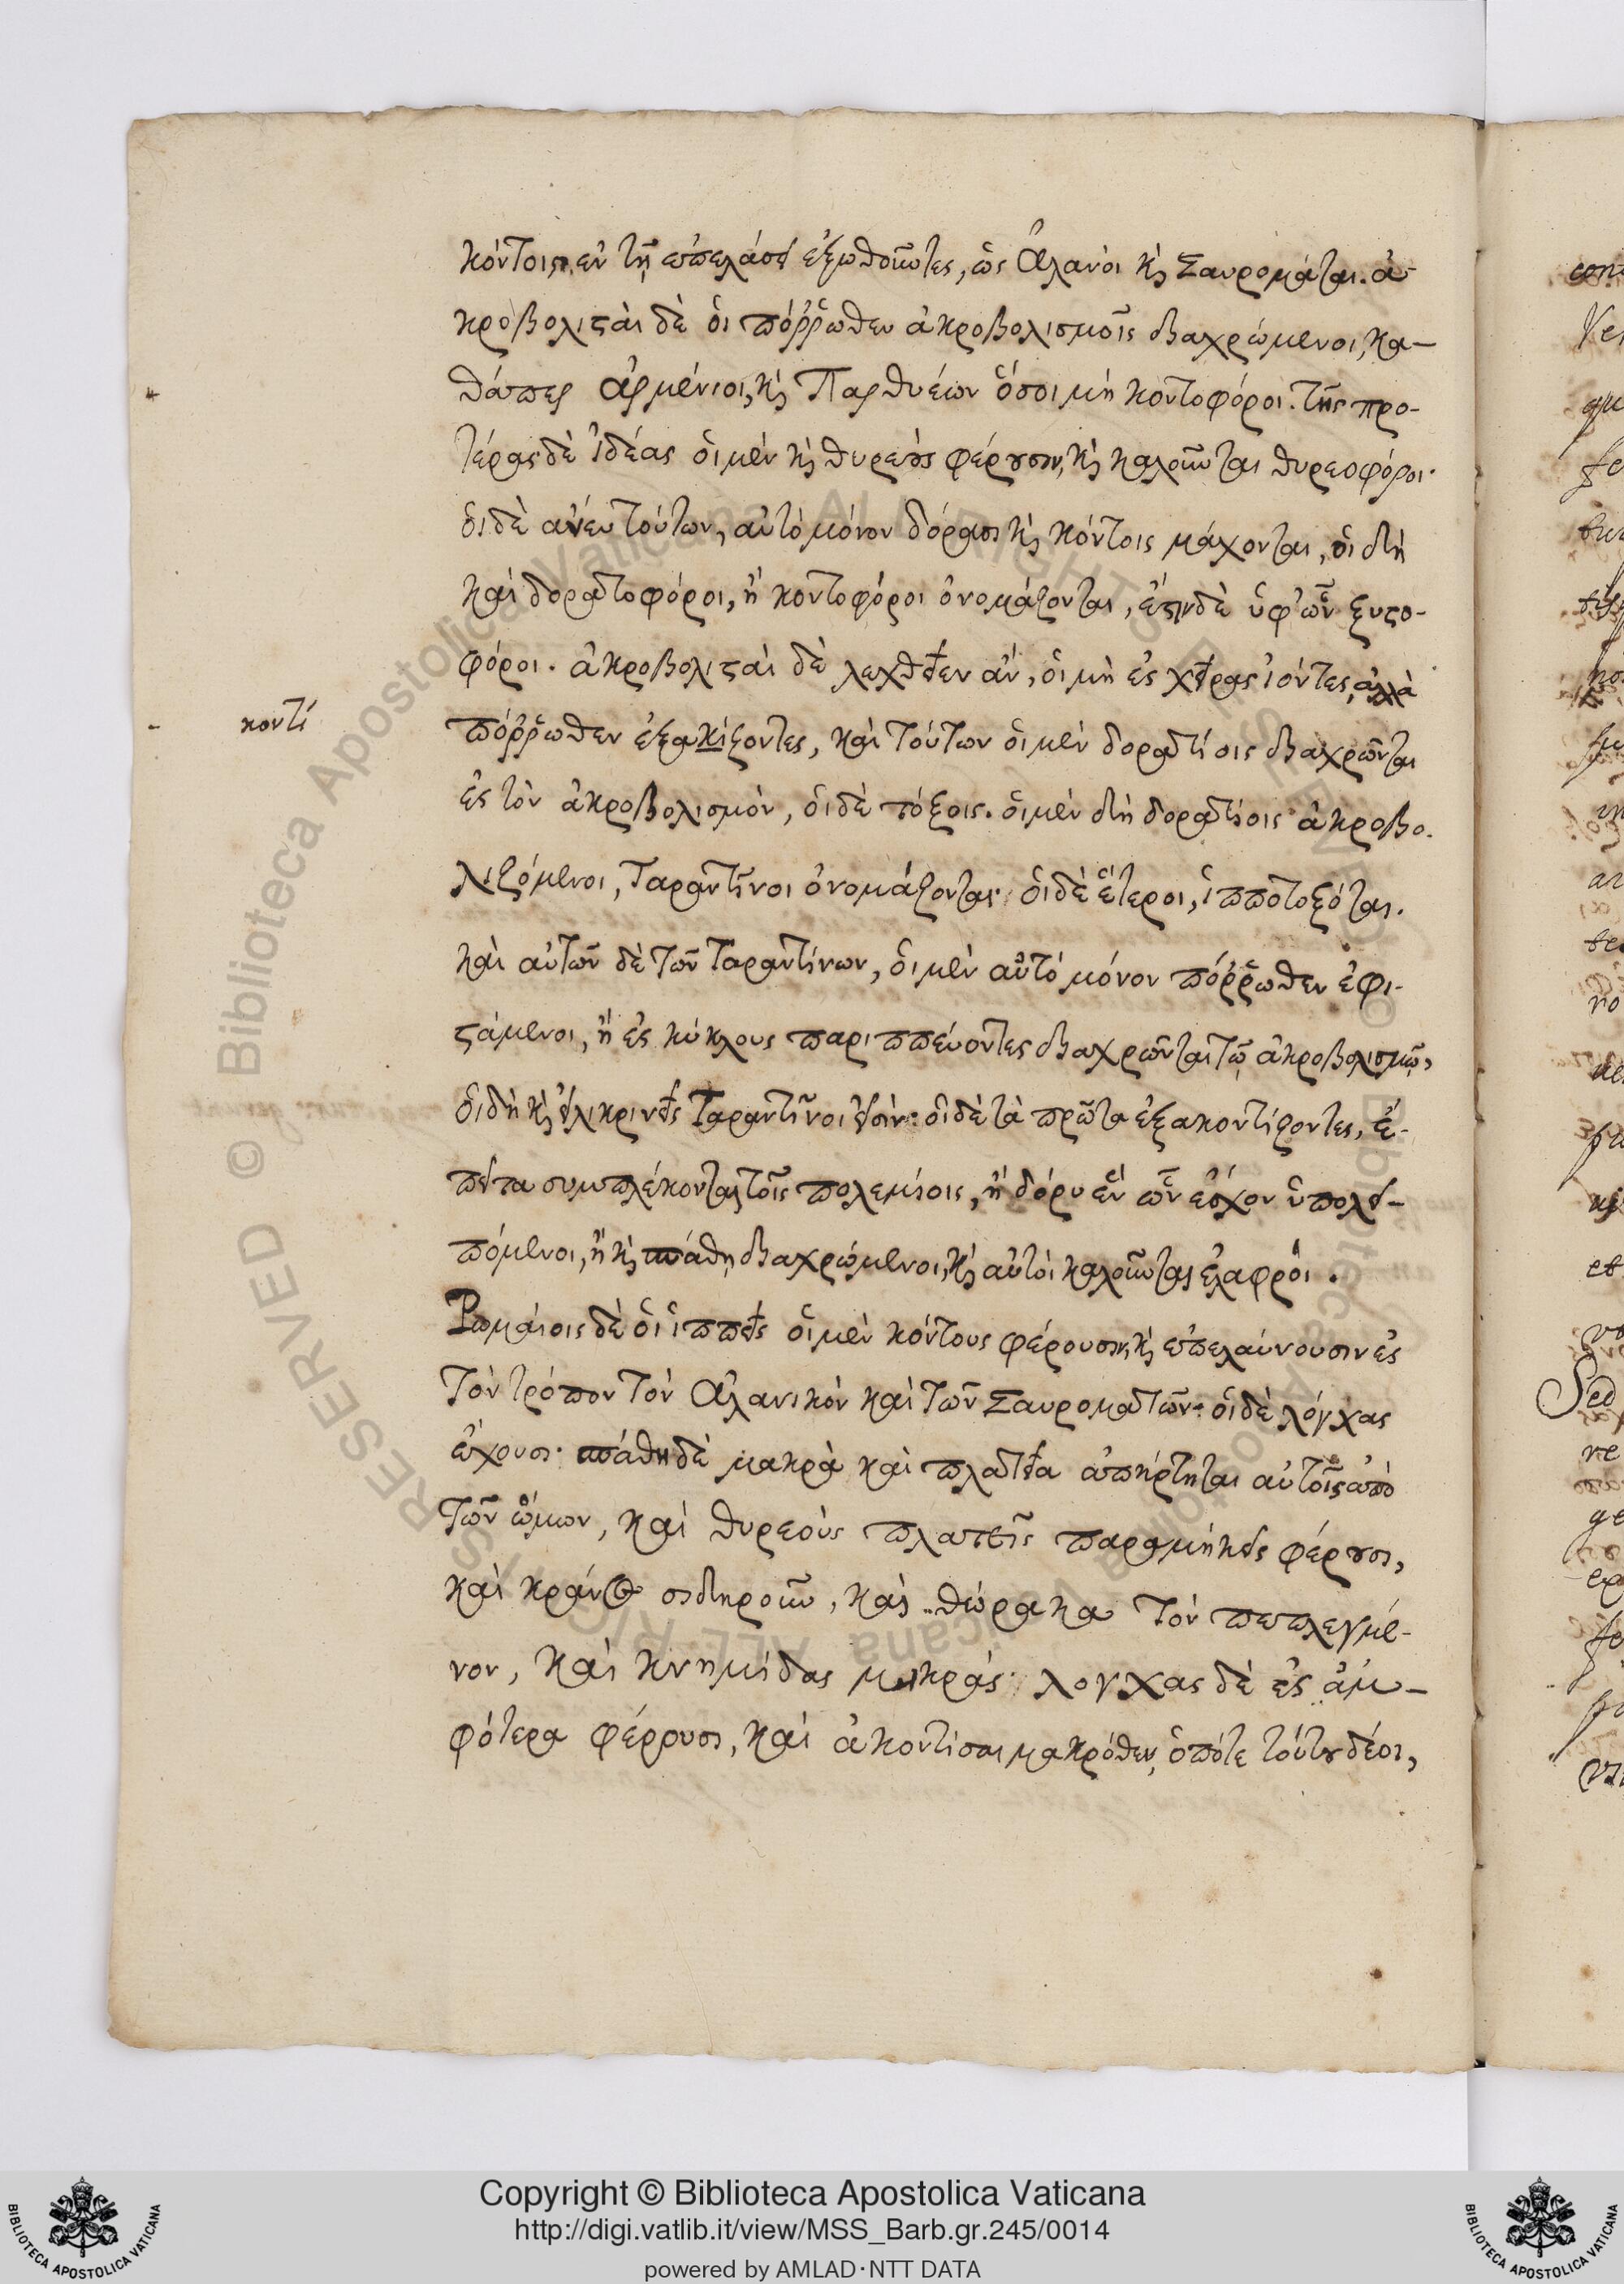 κόντοις, ἐν τῇ ἐπελάσει ἐξωθοῦντες, ὡς Ἀλανοὶ κὶ Σαυρομάται. ἀ-
κροβολισταὶ δὲ ὁι πόῤῥωθεν ἀκροβολισμοῖς διαχρώμενοι, κα-
θάπερ ἀρμένιοι, κὶ Παρθυέων ὅσοι μὴ κοντοφόροι. τῆς προ-
τέρας δὲ ἰδέας ὁι μὲν κὶ θυρεοὺς φέρουσιν, κὶ καλοῦνται θυρεοφόροι.
ὁι δὲ ἀνευ τούτων, αὐτὸ μόνον δόρασι κὶ κόντοις μάχονται, ὁι δὴ
καὶ δορατοφόροι, ἢ κοντοφόροι ὀνομάζονται, ἔστιν δὲ ὑφ' ὧν ξυστο-
φόροι. ἀκροβολισταὶ δὲ λεχθεῖεν ἂν, ὁι μὴ εἰς χεῖρας ἰόντες, ἀλλὰ
κοντί
πόῤῥωθεν ἐξακίζοντες, καὶ τούτων ὁι μὲν δορατίοις διαχρῶνται
ἐς τὸν ἀκροβολισμὸν, ὁι δὲ τόξοις. ὁι μὲν δὴ δορατίοις ἀκροβο-
λιζόμενοι, Ταραντῖνοι ὀνομάζονται· ὁι δὲ ἕτεροι, ἱπποτοξόται.
καὶ αὐτῶν δὲ τῶν Ταραντίνων, ὁι μὲν αὐτὸ μόνον πόῤῥωθεν ἐφι-
στάμενοι, ἢ ἐς κύκλους παριππεύοντες διαχρῶνται τῷ ἀκροβολισμῷ,
ὁι δὴ κὶ εἰλικρινεῖς Ταραντῖνοι εἰσίν: ὁι δὲ τὰ πρῶτα ἐξακοντίζοντες, ἔ-
πειτα συμπλέκονται τοῖς πολεμίοις, ἢ δόρυ ἓν ὧν ἔσχον ὑπολει-
πόμενοι, ἢ κὶ σπάθῃ διαχρώμενοι, κὶ αὐτοὶ καλοῦνται ἐλαφροί.
Ῥωμαίοις δὲ ὁι ἱππεῖς ὁι μὲν κόντους φέρουσιν, κὶ ἐπελαύνουσιν ἐς
τὸν τρόπον τὸν Ἀλανικὸν καὶ τῶν Σαυροματῶν: ὁι δὲ λόγχας
ἔχουσι· σπάθη δὲ μακρὰ καὶ πλατεῖα ἀπήρτηται αὐτοῖς ἀπὸ
τῶν ὤμων, καὶ θυρεοὺς πλατεῖς παραμήκεις φέρουσι,
καὶ κράνος σιδηροῦν, καὶ θώρακα τὸν πεπλεγμέ-
νον, καὶ κνημίδας μικράς· λογχας δὲ ἐς ἀμ-
φότερα φέρουσι, καὶ ἀκοντίσαι μακρόθεν, ὁπότε τούτου δέοι,
con
Ve
qu
Sed
re
ge
et
Copyright © Biblioteca Apostolica Vaticana
http://digi.vatlib.it/view/MSS_Barb.gr.245/0014
powered by AMLAD·NTT DATA
BIBLIOTECA APOSTOLICA VATICANA
BIBLIOTECA APOSTOLICA VATICANA
© Biblioteca Apostolica Vaticana ALL RIGHTS RESERVED